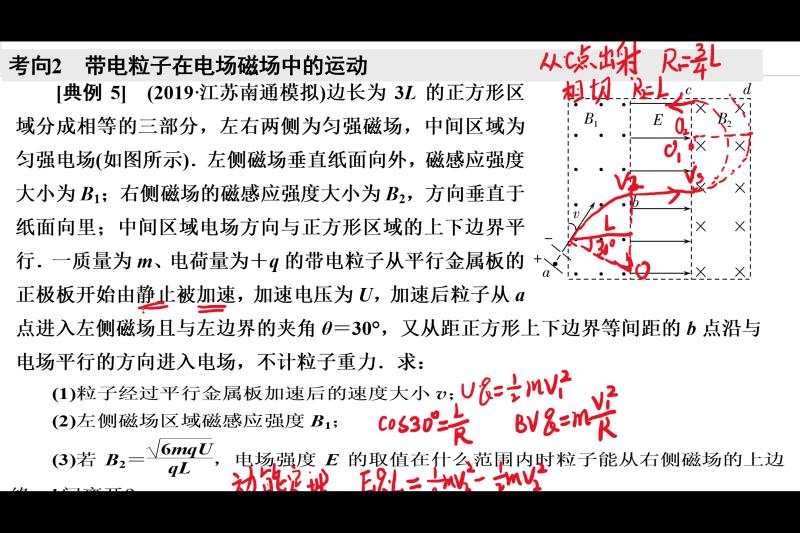 考向2 带电粒子在电场磁场中的运动
从C点出射 R₁=3/4L
相切 R₂=L
[典例 5] (2019·江苏南通模拟)边长为 3L 的正方形区
域分成相等的三部分，左右两侧为匀强磁场，中间区域为
匀强电场(如图所示)．左侧磁场垂直纸面向外，磁感应强度
大小为 B₁；右侧磁场的磁感应强度大小为 B₂，方向垂直于
纸面向里；中间区域电场方向与正方形区域的上下边界平
行．一质量为 m、电荷量为+q 的带电粒子从平行金属板的
正极板开始由静止被加速，加速电压为 U，加速后粒子从 a
点进入左侧磁场且与左边界的夹角 θ=30°，又从距正方形上下边界等间距的 b 点沿与
电场平行的方向进入电场，不计粒子重力．求：
(1)粒子经过平行金属板加速后的速度大小 v；
Uq=1/2mV₁²
(2)左侧磁场区域磁感应强度 B₁；
cos30°=L/R BVq=mV₁²/R
(3)若 B₂=√6mqU/qL，电场强度 E 的取值在什么范围内时粒子能从右侧磁场的上边
c d
B₁ E B₂
O₂
O₁
V₂ V₃
v b
L
30°
− +
a O